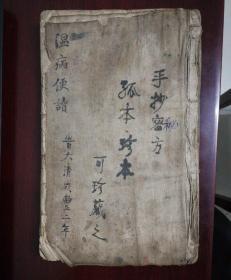 手抄密方
秘
孤本·珍本
可珍藏之
温病便讀
大清咸豐二年